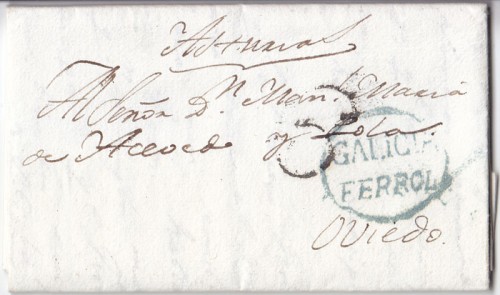 Asturias
Al Señor Dn. Man. Maria
de Acevedo y Pola.
GALICIA
FERROL
Oviedo.